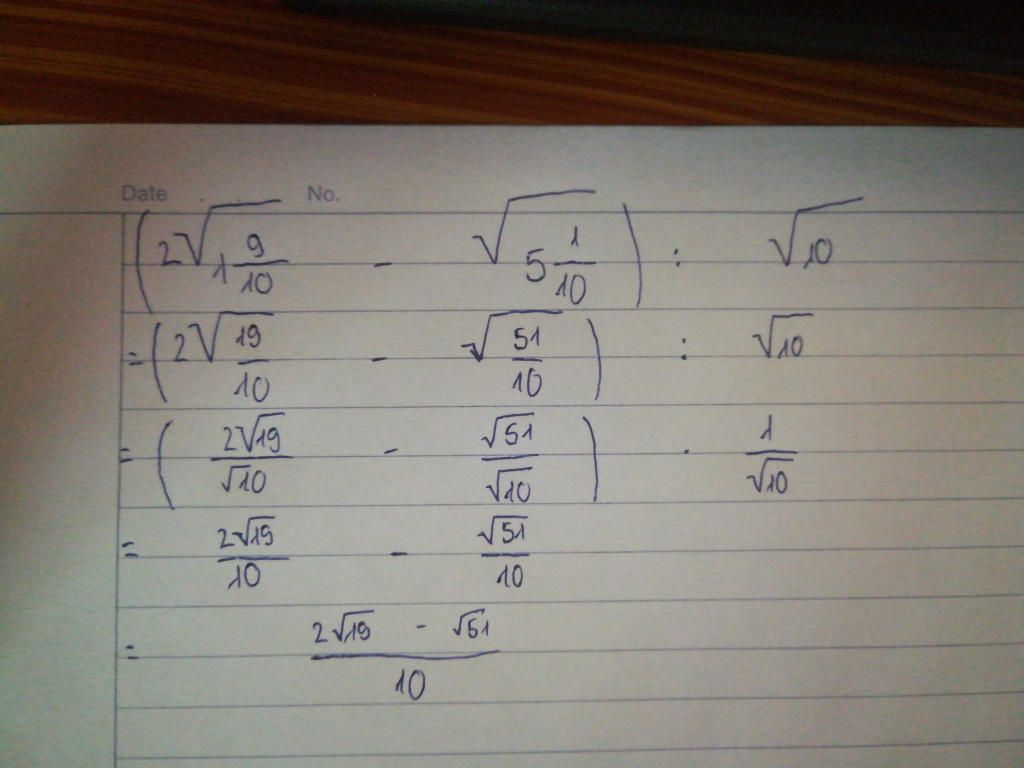 Date . . No.
(2√1 9/10 - √5 1/10) : √10
= (2√19/10 - √51/10) : √10
= (2√19/√10 - √51/√10) . 1/√10
= 2√19/10 - √51/10
= 2√19 - √51/10